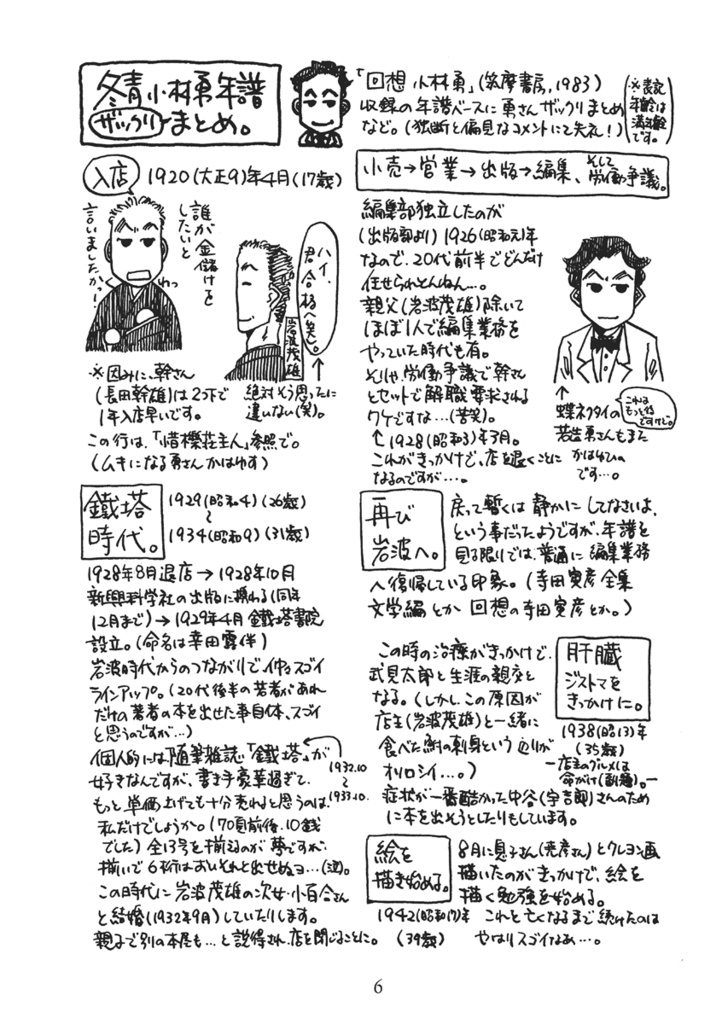 冬青小林勇年譜
ザックリまとめ。
「回想 小林勇」(筑摩書房,1983)
収録の年譜ベースに勇さんザックリまとめ
など。(独断と偏見なコメントにて失礼!)
(※表記
年齢は
満年齢
です。)
入店
1920(大正9)年4月(17歳)
誰が金儲けを
したいと
言いましたかっ!
ハイ、
君合格(笑)。
岩波茂雄
※因みに、幹さん
(長田幹雄)は2つ下で
1年入店早いです。
↑
絶対そう思ったに
違いない(笑)。
この行は、「惜櫟荘主人」参照で。
(ムキになる勇さんかはゆす)
小売→営業→出版→編集、そして労働争議。
編集部独立したのが
(出版部より) 1926(昭和元)年
なので、20代前半でどんだけ
任せられとんねん…。
親父(岩波茂雄)除いて
ほぼ1人で編集業務を
やっていた時代も有。
そしや、労働争議で幹さん
とセットで解職要求される
ワケですな…(苦笑)。
↑1928(昭和3)年3月。
これがきっかけで、店を退くことに
なるのですが…。
↑
蝶ネクタイの
若造勇さんもまた
かはゆひの
です…。
これは
もっと後
ですけど。
鐵塔
時代。
1929(昭和4)(26歳)
〜
1934(昭和9)(31歳)
1928年8月退店→1928年10月
新興科学社の出版に携わる(同年
12月まで)→1929年4月鐵塔書院
設立。(命名は幸田露伴)
岩波時代からのつながりで仲々スゴイ
ラインアップ。(20代後半の若者があれ
だけの著者の本を出せた事自体、スゴイ
と思うのですが…)
個人的には随筆雑誌「鐵塔」が
好きなんですが、書き手豪華過ぎて、
1932.10
〜
1933.10.
もっと単価上げても十分売れると思うのは
私だけでしょうか。(70頁前後、10銭
でした)全13号を揃えるのが夢ですが、
揃いで6桁はおいそれと出せぬヨ…(泣)。
この時代に岩波茂雄の次女・小百合さん
と結婚(1932年9月)していたりします。
親子で別の本屋も…と説得され、店を閉じることに。
再び
岩波へ。
戻って暫くは静かにしてなさいよ、
という事だったようですが、年譜を
見る限りでは、普通に編集業務
へ復帰している印象。(寺田寅彦全集
文学編とか回想の寺田寅彦とか。)
肝臓
ジストマを
きっかけに。
1938(昭13)年
(35歳)
―店主のグルメは
命がけ(副題)。―
この時の治療がきっかけで、
武見太郎と生涯の親交と
なる。(しかし、この原因が
店主(岩波茂雄)と一緒に
食べた鮒の刺身という辺りが
オソロシイ…。)
症状が一番酷かった中谷(宇吉郎)さんのため
に本を出そうとしたりもしています。
絵を
描き始める。
8月に息子さん(堯彦さん)とクレヨン画
描いたのがきっかけで、絵を
描く勉強を始める。
1942(昭和17)年
(39歳)
これと亡くなるまで続けたのは
やはりスゴイなぁ…。
6